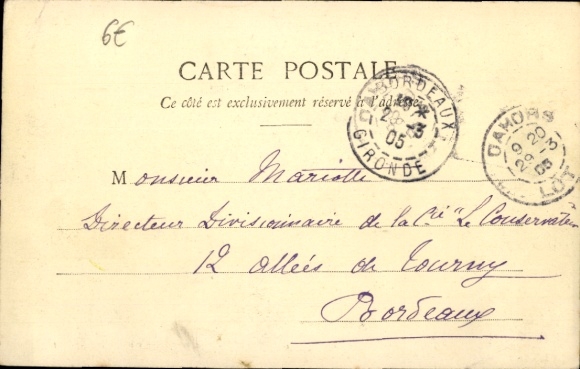 6€
CARTE POSTALE
Ce côté est exclusivement réservé à l'adresse
BORDEAUX
GIRONDE
05
CAHORS
20
29 3
05
LOT
Monsieur Mariotte
Directeur Divisionnaire de la Cie "Le Conservateur
12 allées de Tourny
Bordeaux